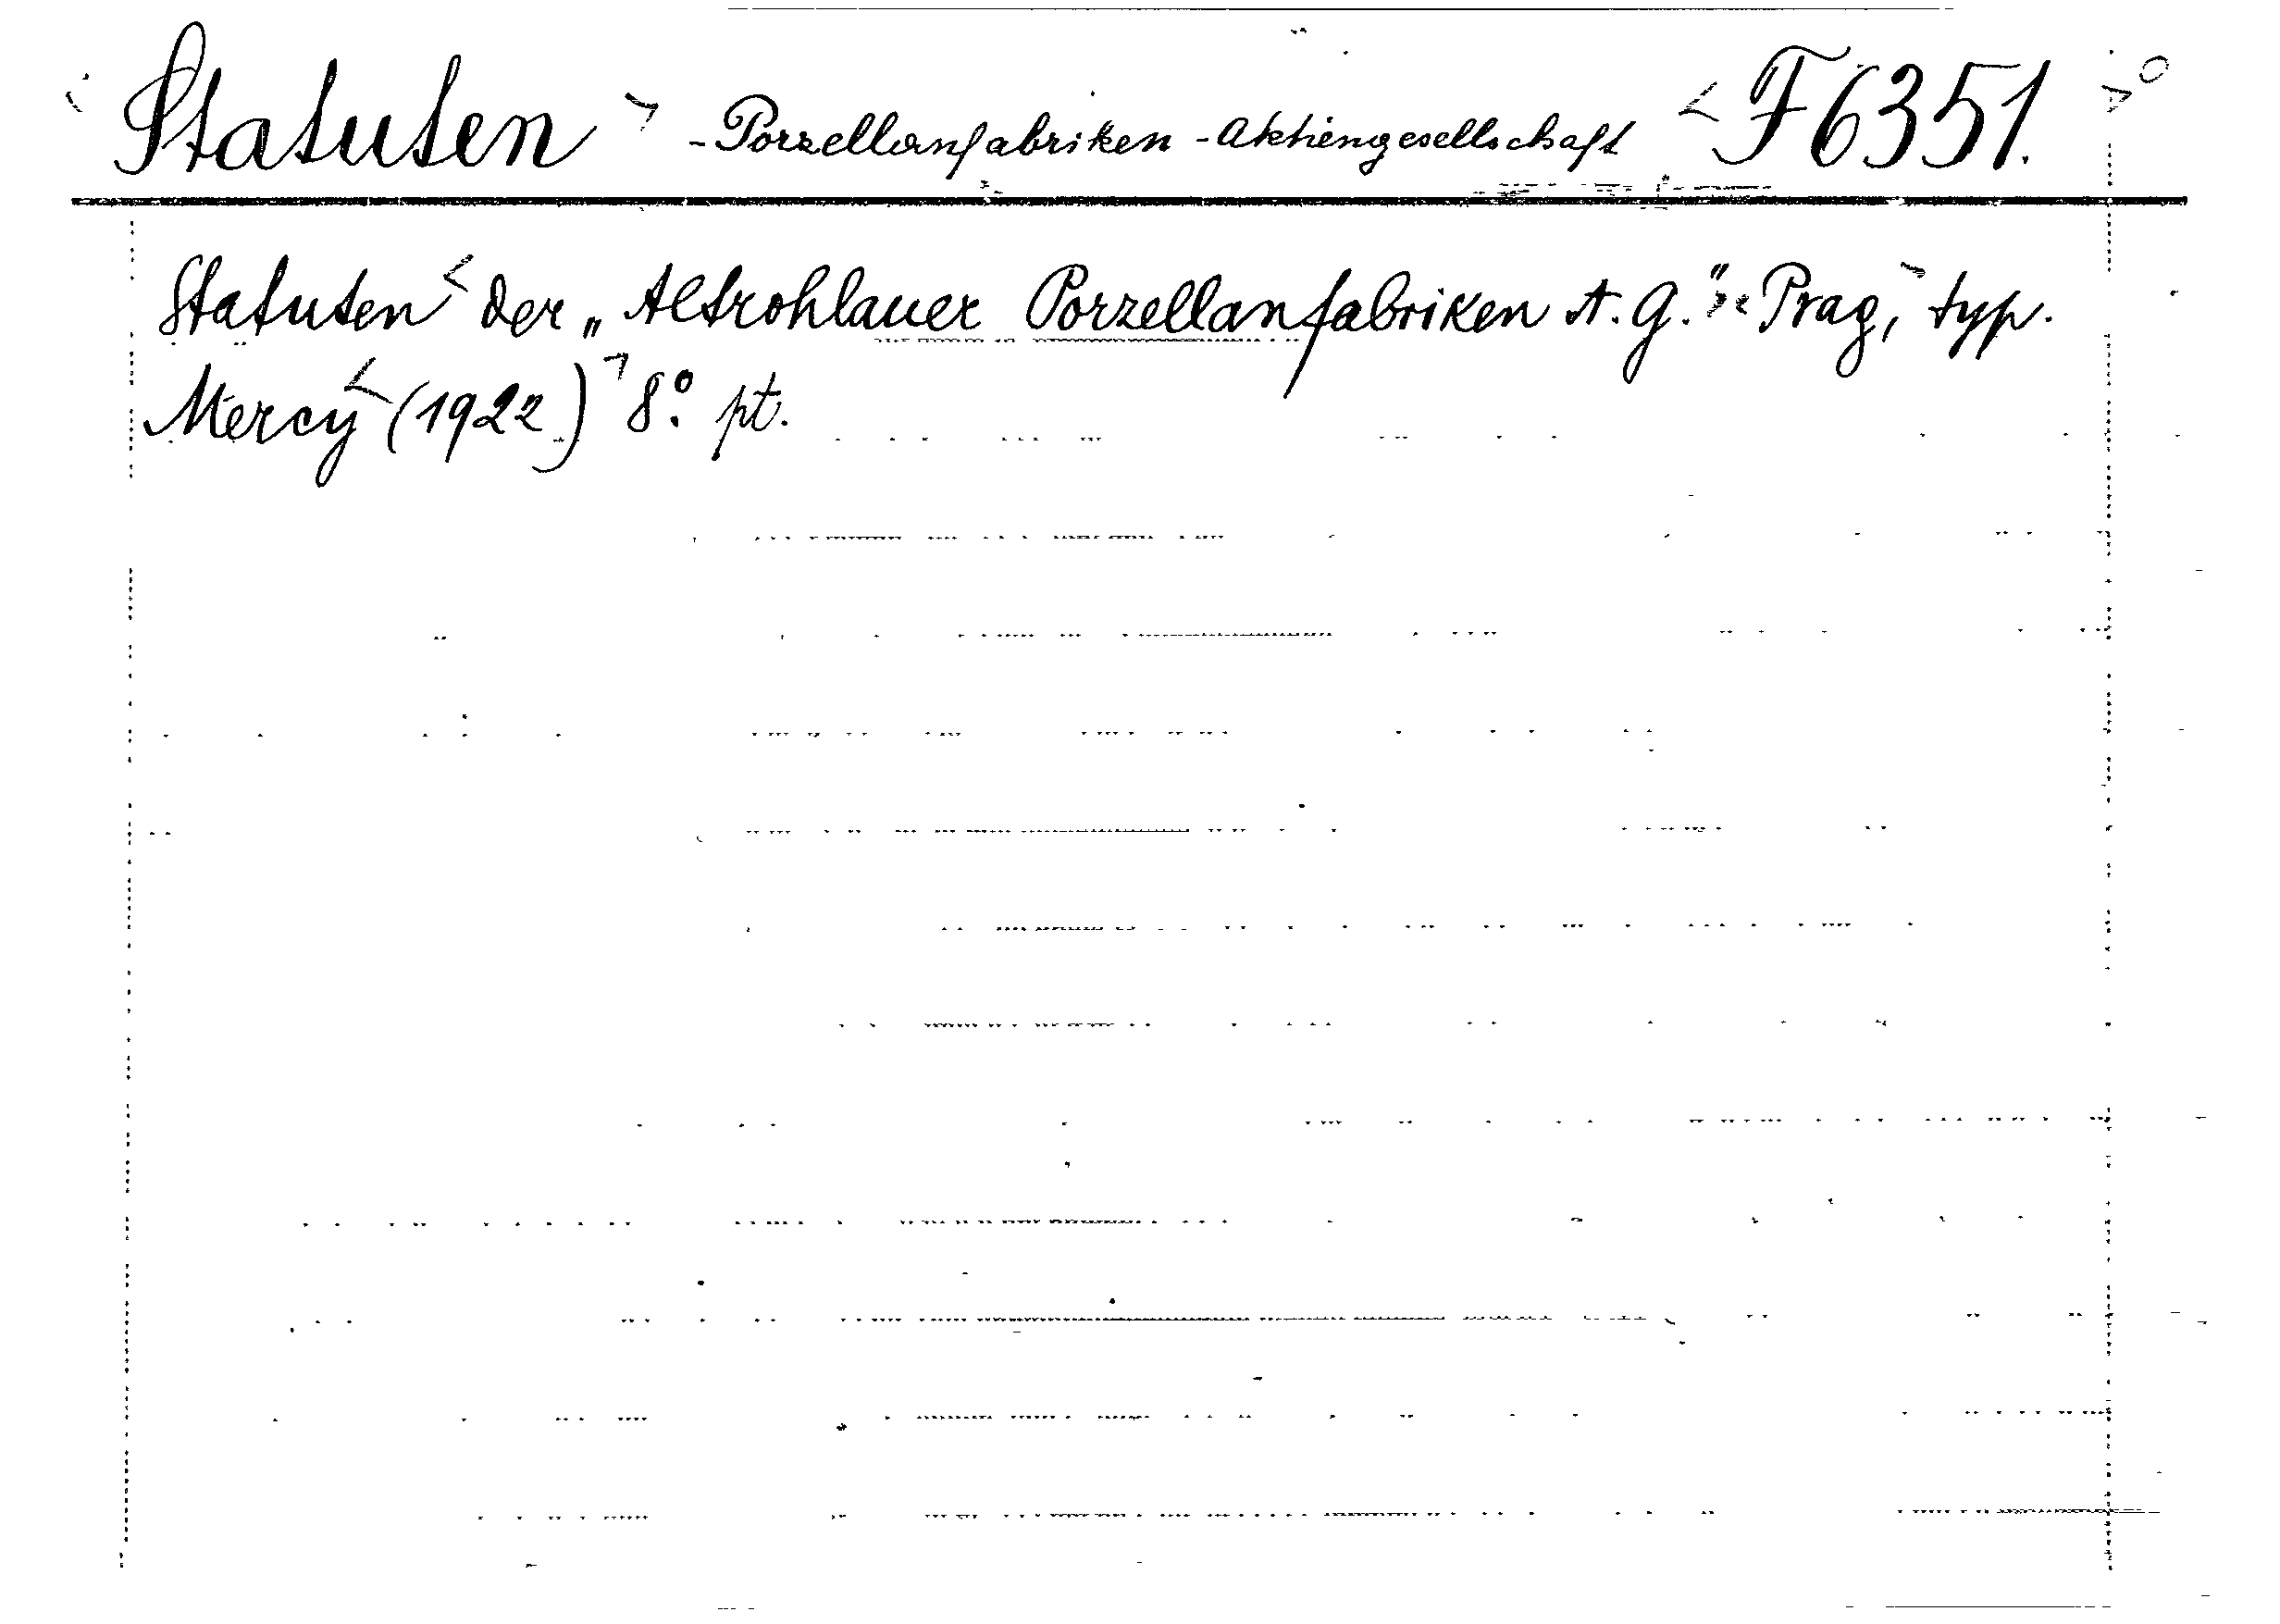 Statuten - Porzellanfabriken - Aktiengesellschaft F 6351.
Statuten der „Altrohlauer Porzellanfabriken A. G." Prag, typ.
Mercy (1922) 8°. pt.